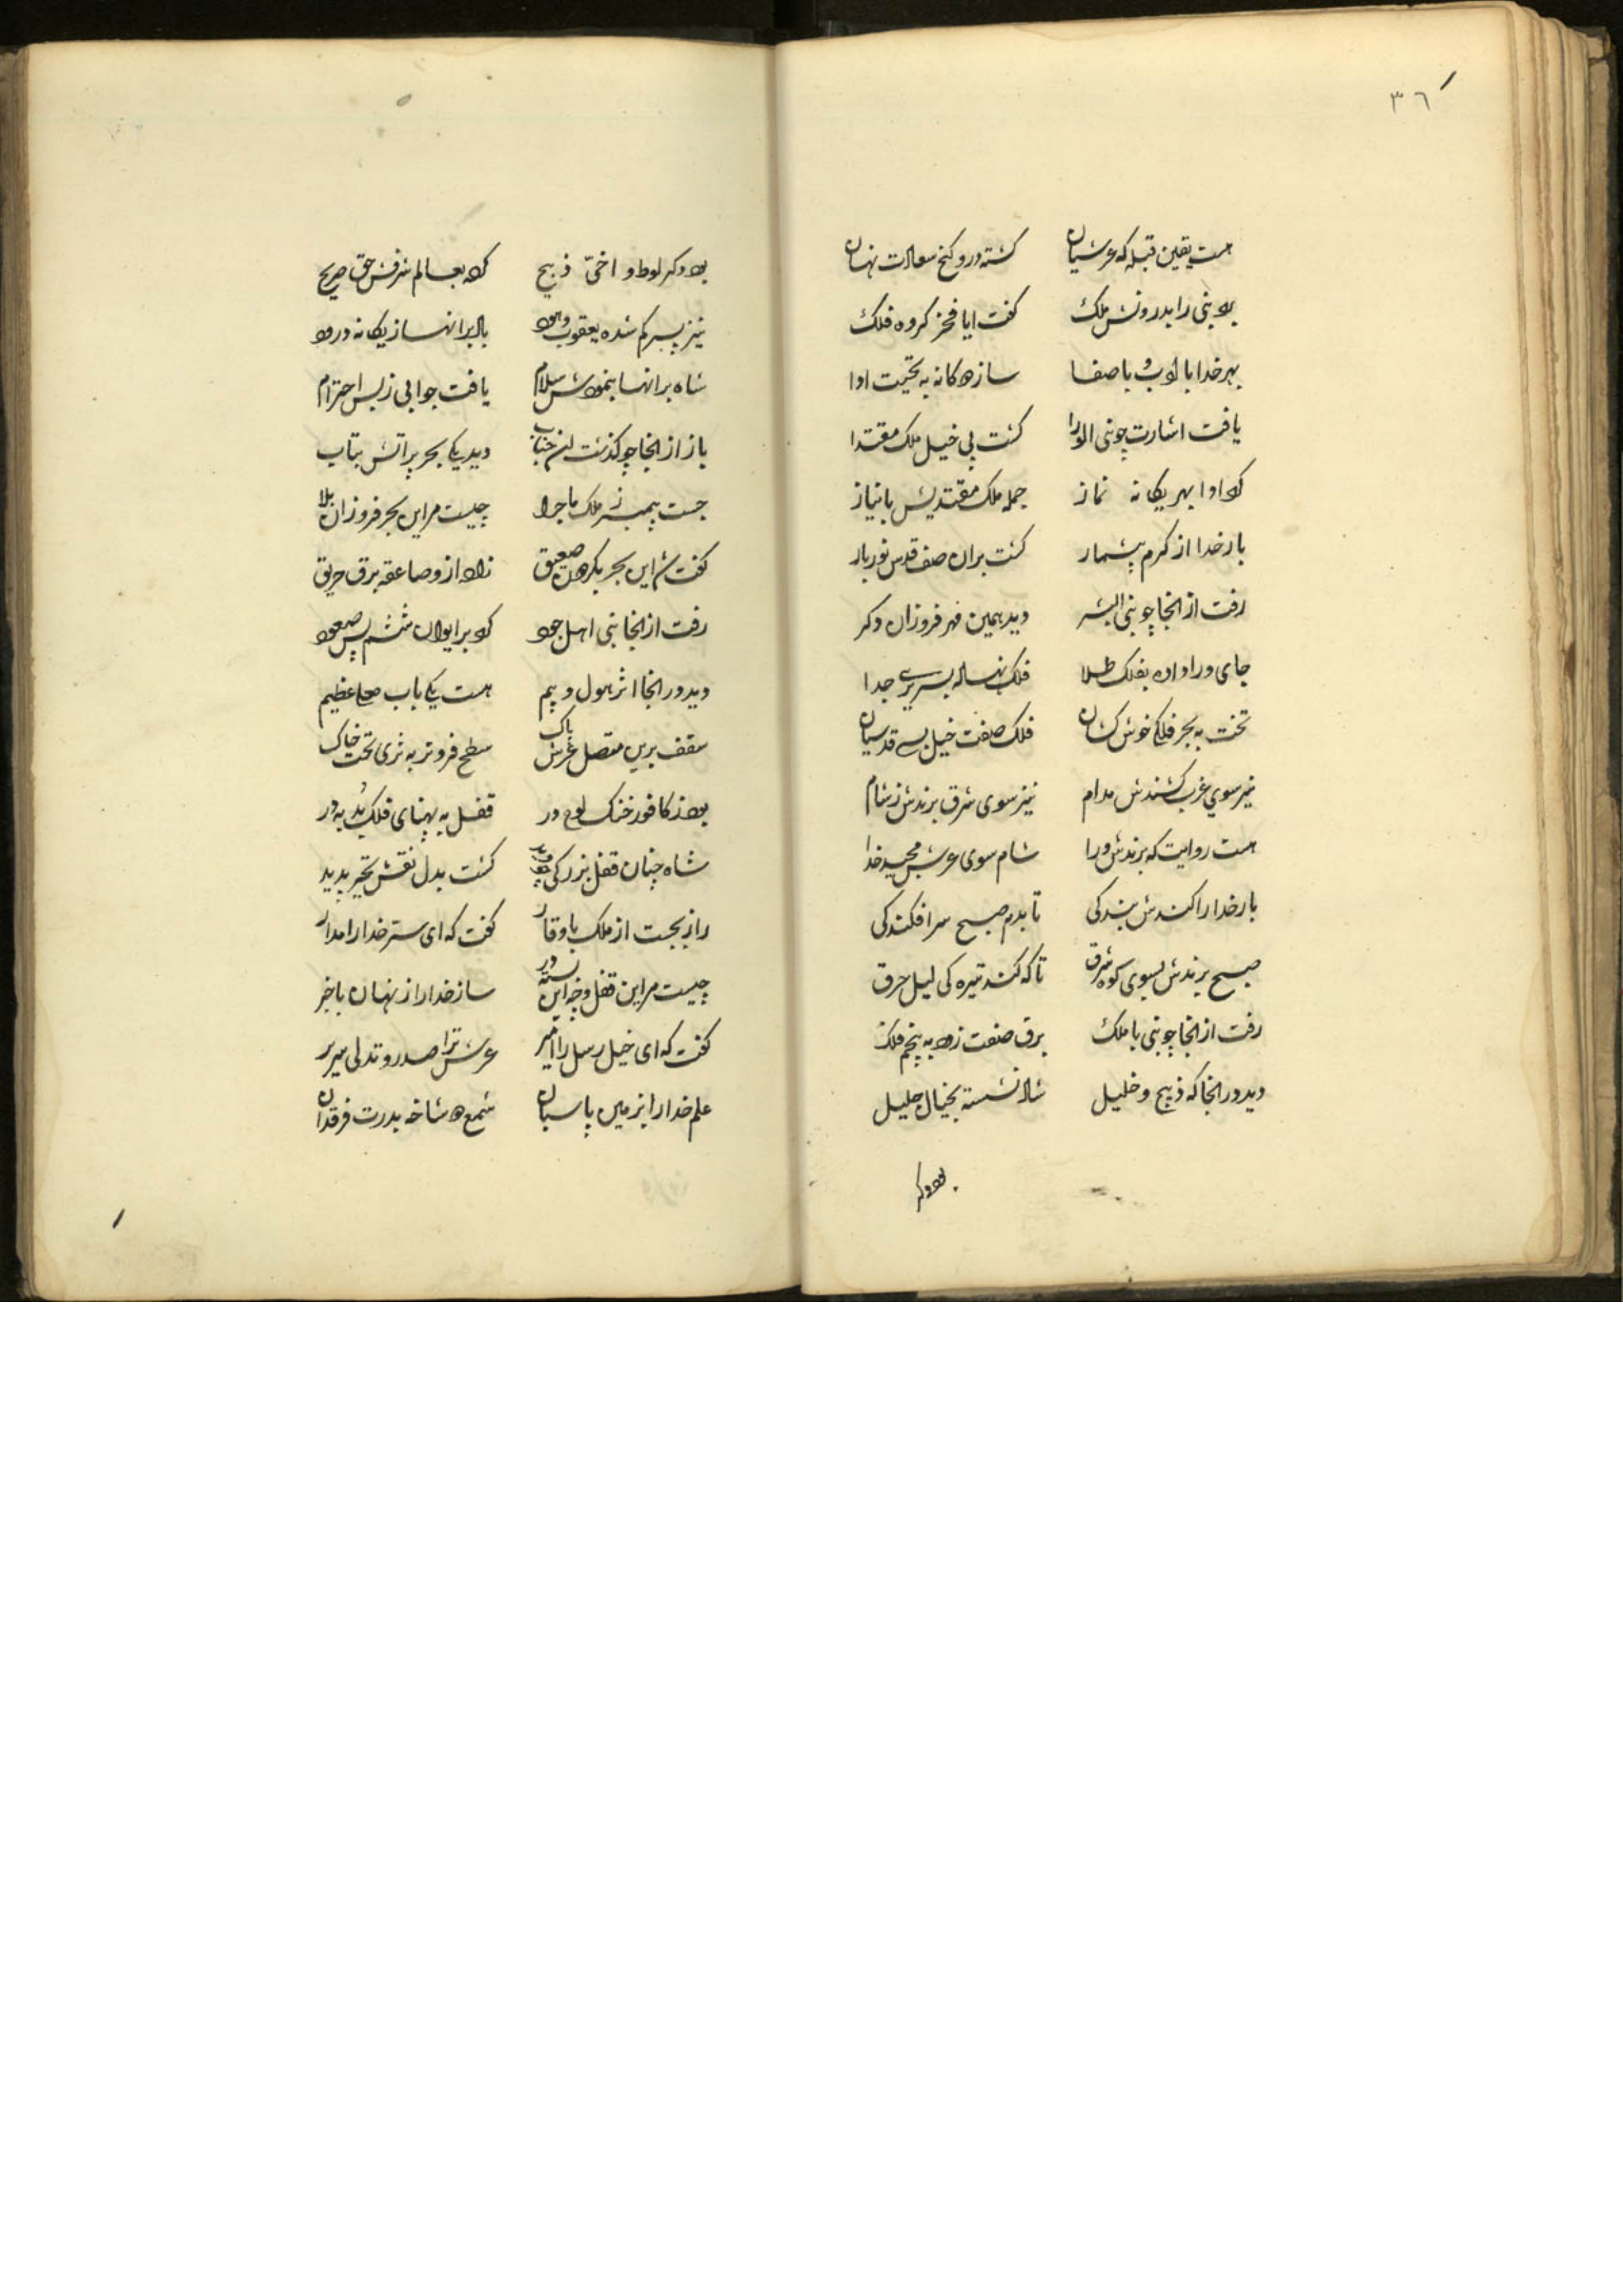 ٣٦
هست یقین قبله که عرشیان گشته درو گنج سعادت نهان
برد نبی را بدرونش ملک گفت ایا فخر گروه فلک
بهر خدا با ادب و با صفا ساز دوگانه به تحیت ادا
یافت اشارت چو نبی الورا گشت پی خیل ملک مقتدا
کرد ادا بهر یگانه نماز جمله ملک مقتدیش با نیاز
بار خدا از کرم بیشمار گشت بران صف قدس نوربار
رفت از انجا چو نبی البشر دید همین مهر فروزان دگر
جای ورا داده بفلک طلا فلک نهاده بسریری جدا
تخت به بحر فلکی خوش کشان فلک صفت خیل قدسیان
نیز سوی غرب کشندش مدام نیز سوی شرق برندش ز شام
هست روایت که برندش ورا شام سوی عرش مجید خدا
بار خدا را کندش بندگی تا بدم صبح سرافکندگی
صبح برندش بسوی کوه شرق تا که کند تیرگی لیل حرق
رفت از انجا چو نبی با ملک برق صفت زود به پنجم فلک
دید در انجا که ذبیح و خلیل شاد نشسته بخیال جلیل
بود دگر
بود دگر لوط و اخی ذبیح کرد بعالم شرفش حق صریح
نیز پسر گم شده یعقوب و هود باد برانها ز یگانه درود
شاه برانها بنمودش سلام یافت جوابی ز پس احترام
باز از انجا چو گذشت ان جناب دید یکی بحر پر آتش بتاب
جست پیمبر ز ملک ماجرا چیست مر این بحر فروزان بلا
گفت این بحر صعیق زاد ازو صاعقه برق حریق
رفت از انجا نبی اهل جود کرد بر ایوان ششم پس صعود
دید در انجا اثر هول و بیم هست یکی باب معلا عظیم
سقف برین متصل عرش پاک سطح فروتر به ثری تحت خاک
بود ز کافور خنک لوح در قفل به پهنای فلک بد به در
شاه چنان قفل بزرگی چو دید گشت بدل نقش تحیر پدید
راز بجست از ملک با وقار گفت که ای ستر خدا را مدار
چیست مر این قفل و چه این بسته در ساز خدا را ز نهان باخبر
گفت که ای خیل رسل را امیر عرش ترا صدر و تدلی سریر
علم خدا را بزمین پاسبان شمع دو شاخه بدرت فرقدان